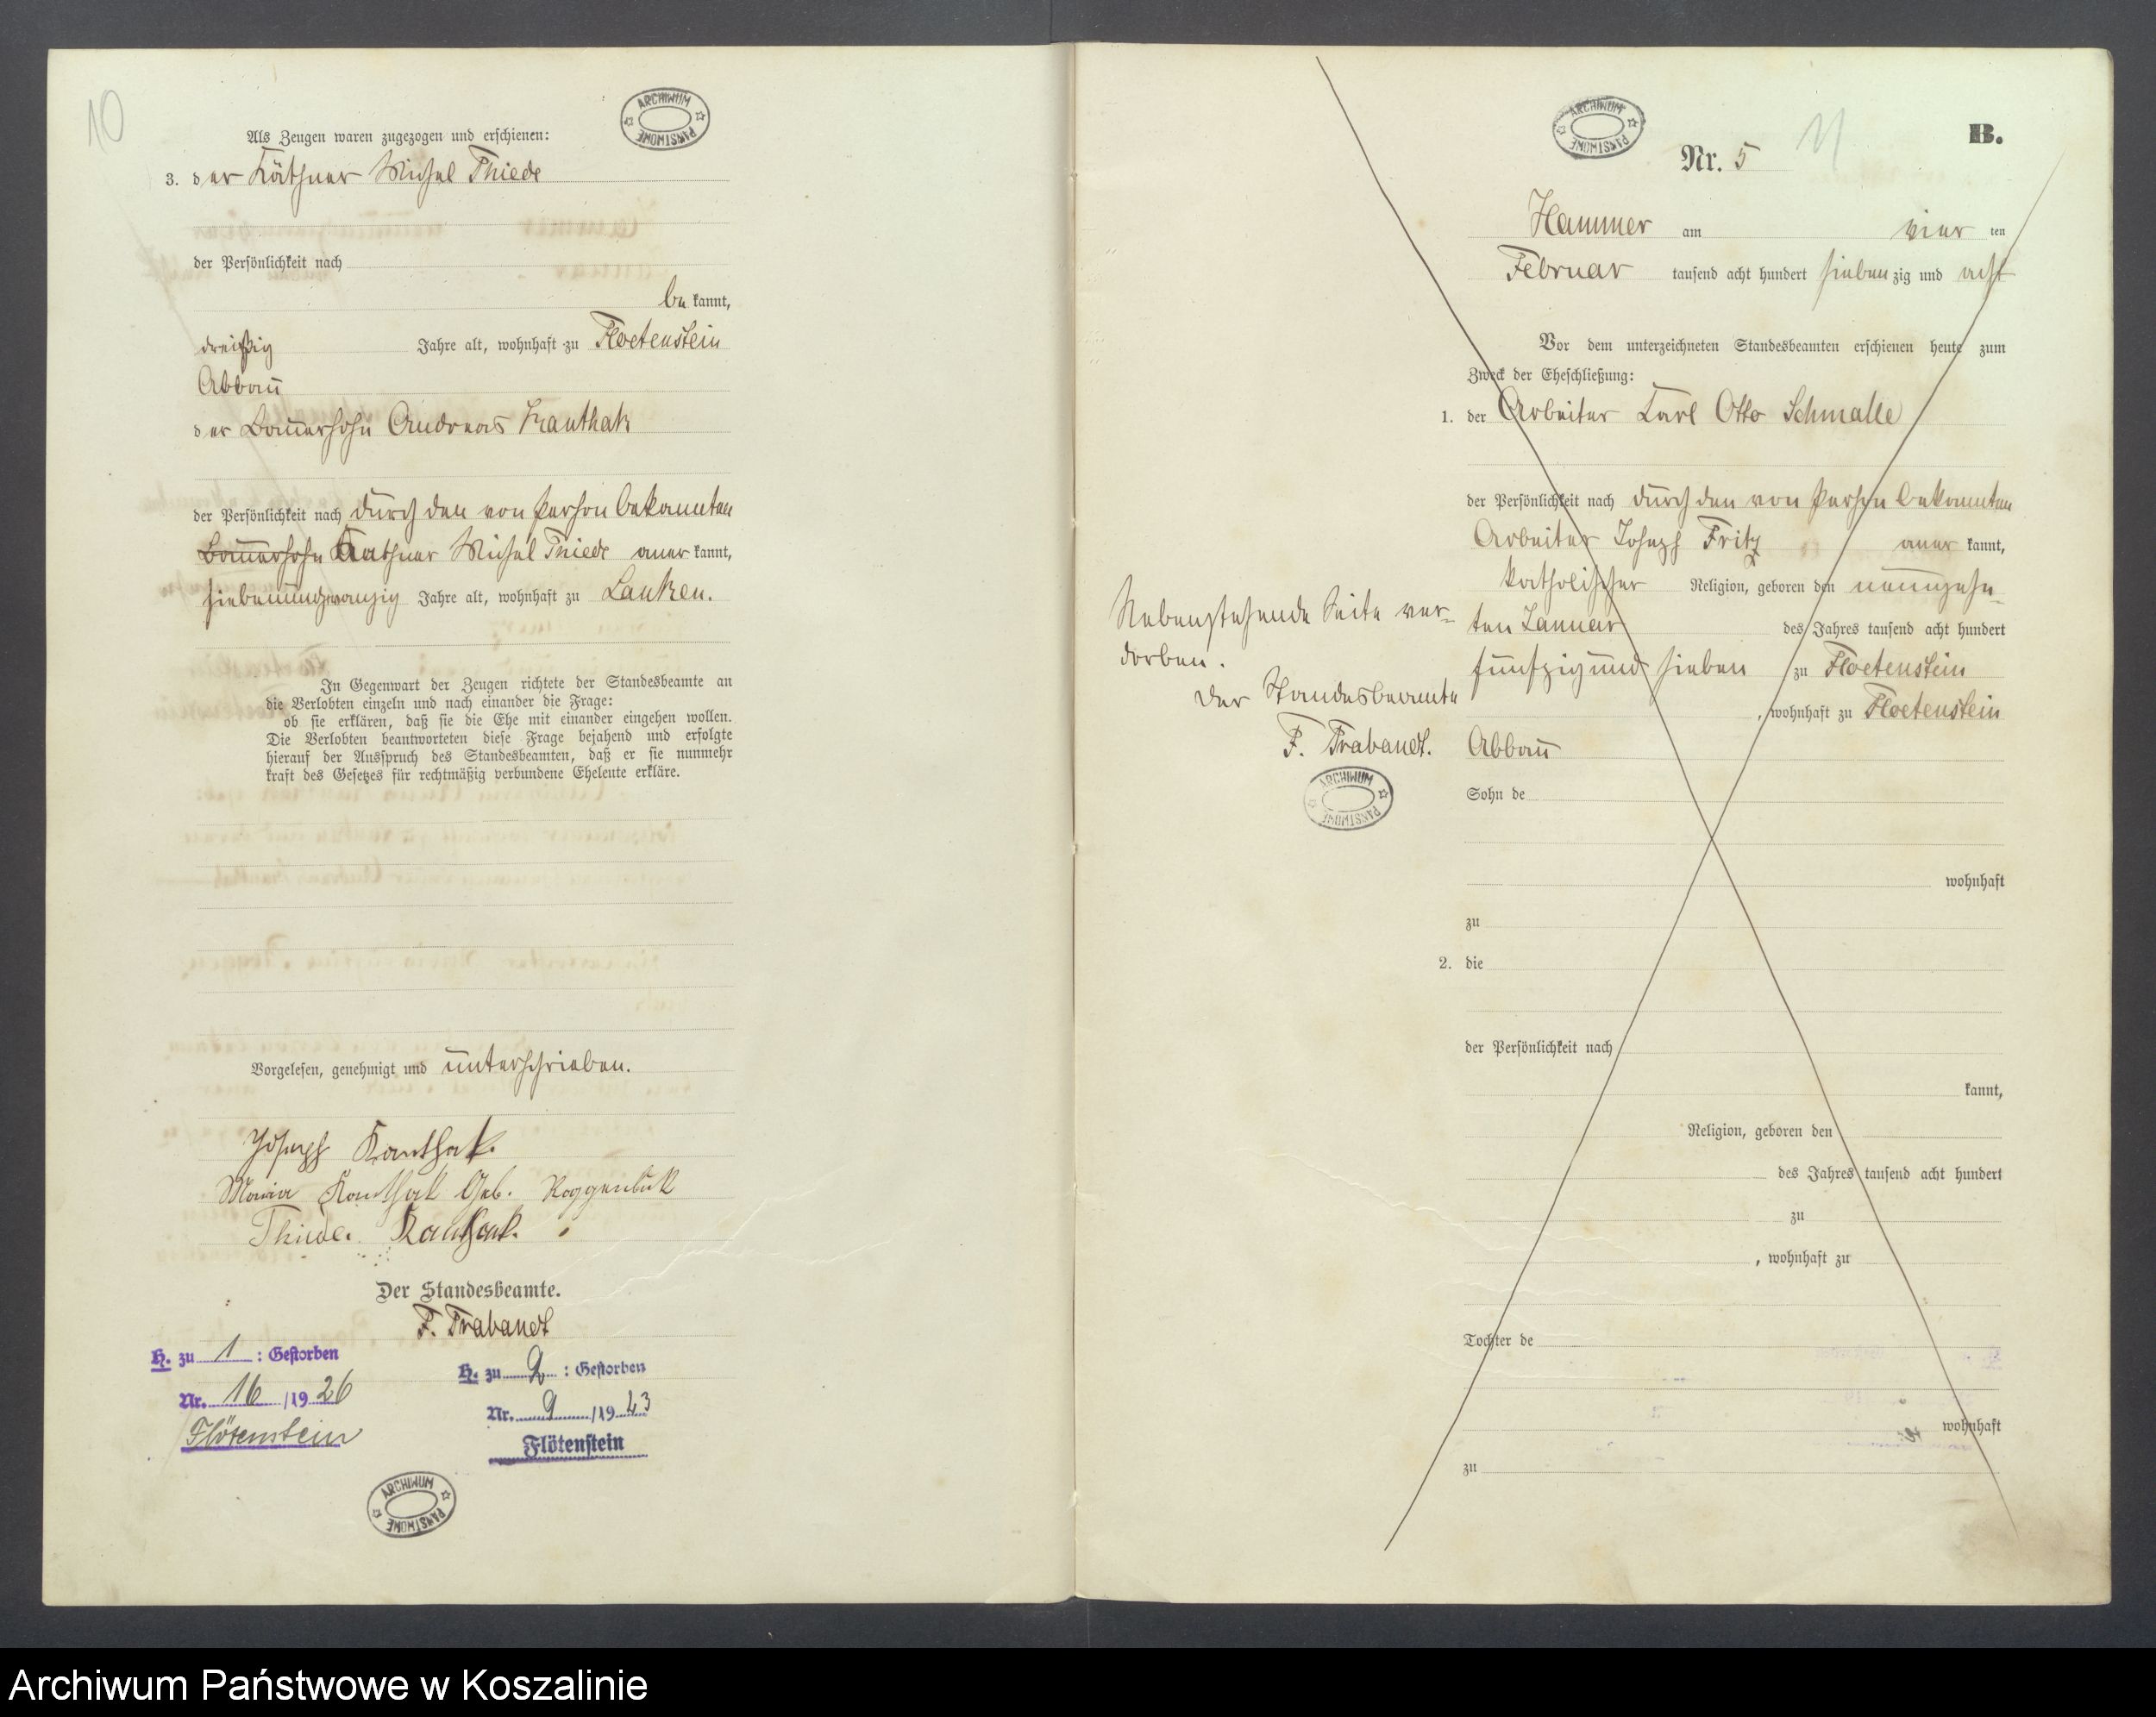 10
ARCHIWUM PAŃSTWOWE
Als Zeugen waren zugezogen und erschienen:
3. der Käthner Michel Thiede
der Persönlichkeit nach
be kannt,
dreißig Jahre alt, wohnhaft zu Floetenstein
Abbau
der Bauersohn Andreas Kanthak
der Persönlichkeit nach durch den von Person bekannten
Bauersohn Kathner Michel Thiede aner kannt,
siebenundzwanzig Jahre alt, wohnhaft zu Lanken.
In Gegenwart der Zeugen richtete der Standesbeamte an
die Verlobten einzeln und nach einander die Frage:
ob sie erklären, daß sie die Ehe mit einander eingehen wollen.
Die Verlobten beantworteten diese Frage bejahend und erfolgte
hierauf der Ausspruch des Standesbeamten, daß er sie nunmehr
kraft des Gesetzes für rechtmäßig verbundene Eheleute erkläre.
Vorgelesen, genehmigt und unterschrieben.
Joseph Kanthak.
Maria Kanthak Geb. Roggenbuk
Thiede. Kanthak.
Der Standesbeamte.
F. Trabandt
H. zu 1 : Gestorben
Nr. 16 /19 26
Flötenstein
H. zu 2 : Gestorben
Nr. 9 /19 43
Flötenstein
ARCHIWUM PAŃSTWOWE
ARCHIWUM PAŃSTWOWE
11
B.
Nr. 5
Hammer am vier ten
Februar tausend acht hundert sieben zig und acht
Vor dem unterzeichneten Standesbeamten erschienen heute zum
Zweck der Eheschließung:
1. der Arbeiter Carl Otto Schmalle
der Persönlichkeit nach durch den von Person bekannten
Arbeiter Joseph Fritz aner kannt,
katholischer Religion, geboren den neunzehn-
ten Januar des Jahres tausend acht hundert
fünfzig und sieben zu Floetenstein
, wohnhaft zu Floetenstein
Abbau
Sohn de
wohnhaft
zu
2. die
der Persönlichkeit nach
kannt,
Religion, geboren den
des Jahres tausend acht hundert
zu
, wohnhaft zu
Tochter de
wohnhaft
zu
Nebenstehende Seite ver-
dorben.
Der Standesbeamte
F. Trabandt.
ARCHIWUM PAŃSTWOWE
Archiwum Państwowe w Koszalinie